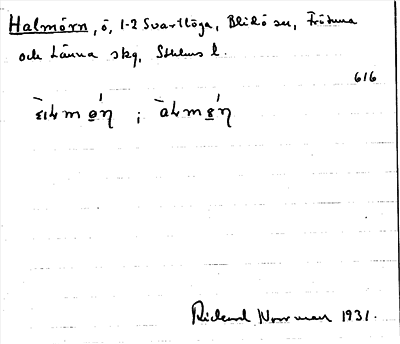 Halmörn, ö, 1-2 Svartlöga, Blidö sn, Frötuna
och Länna skg, Sthlms l.
616
Rickard Norrman 1931.